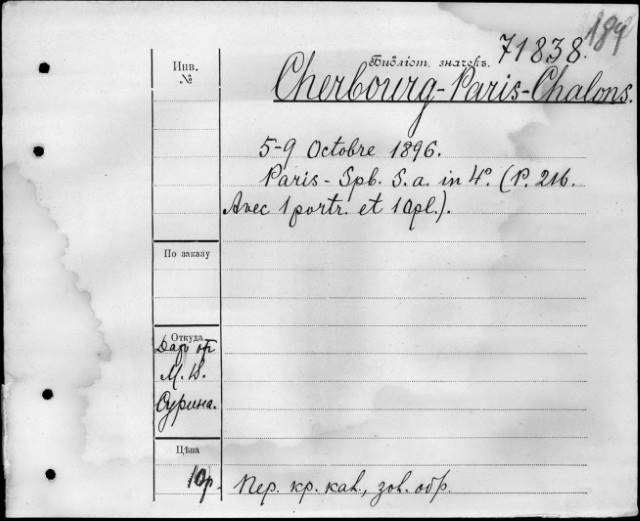 189
Инв.
№
Библіот. значекъ. 71838.
Cherbourg-Paris-Chalons.
5-9 Octobre 1896.
Paris - Spb. S. a. in 4°. (P. 216.
Avec 1 portr. et 1 apl.).
По заказу
Откуда
Даръ от
М. В.
Сурина.
Цѣна
10р.
Пер. кр. кал., зол. обр.